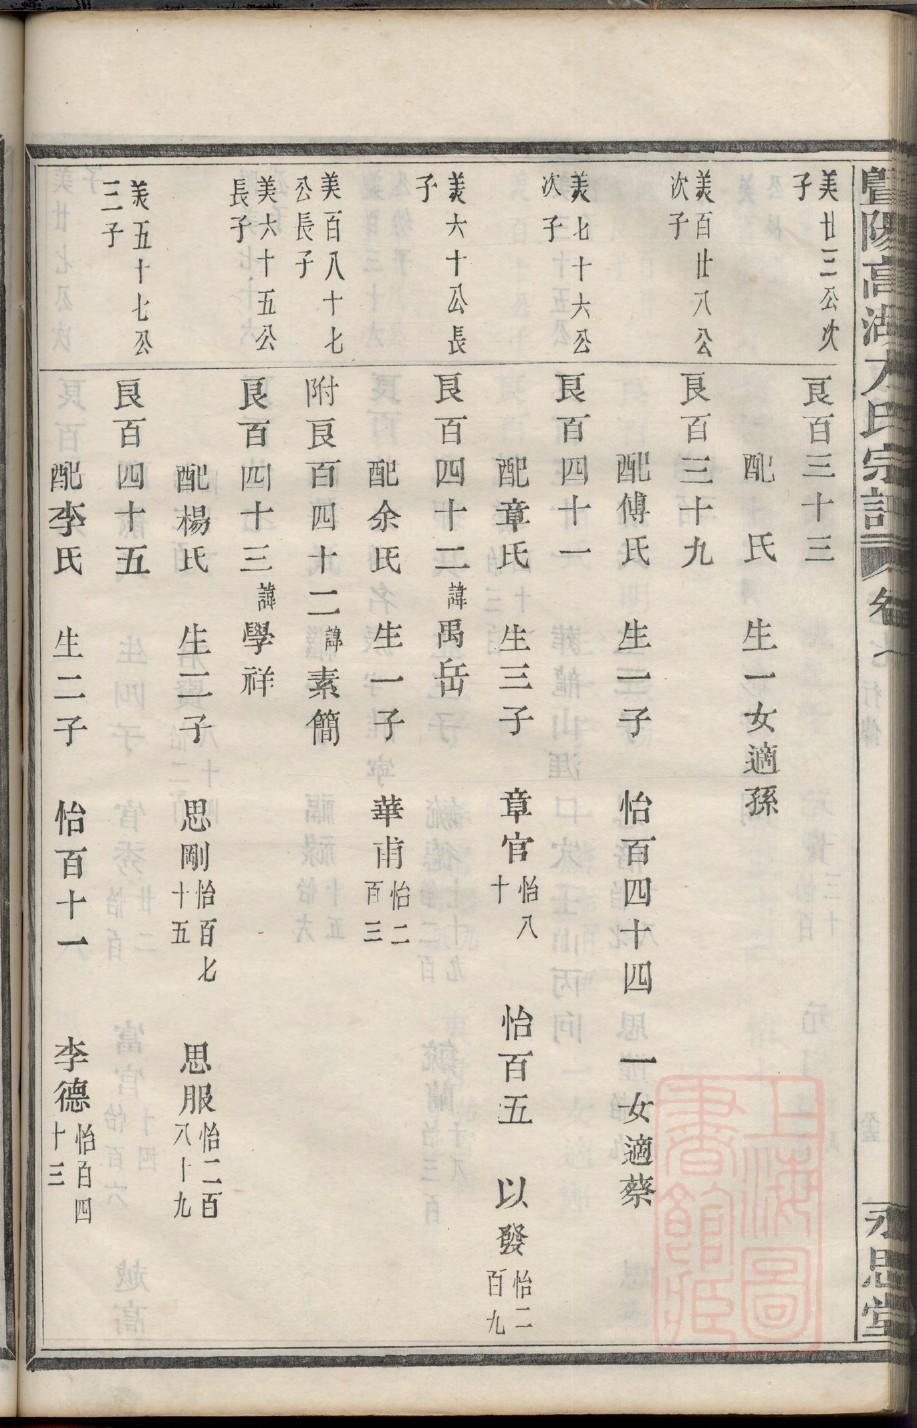 暨陽高湖方氏宗譜 卷七 行傳 永思堂
美廿三公次子
艮百三十三
配 氏 生一女適孫
美百廿八公次子
艮百三十九
配傅氏 生一子 怡百四十四 一女適蔡
美七十六公次子
艮百四十一
配章氏 生三子 章官怡八十 怡百五 以發怡二百九
美六十公長子
艮百四十二諱禹岳
配余氏 生一子 華甫怡二百三
美百八十七公長子
附艮百四十二諱素簡
美六十五公長子
艮百四十三諱學祥
配楊氏 生二子 思剛怡百七十五 思服怡二百八十九
美五十七公三子
艮百四十五
配李氏 生二子 怡百十一 李德怡百四十三
上海圖書館藏